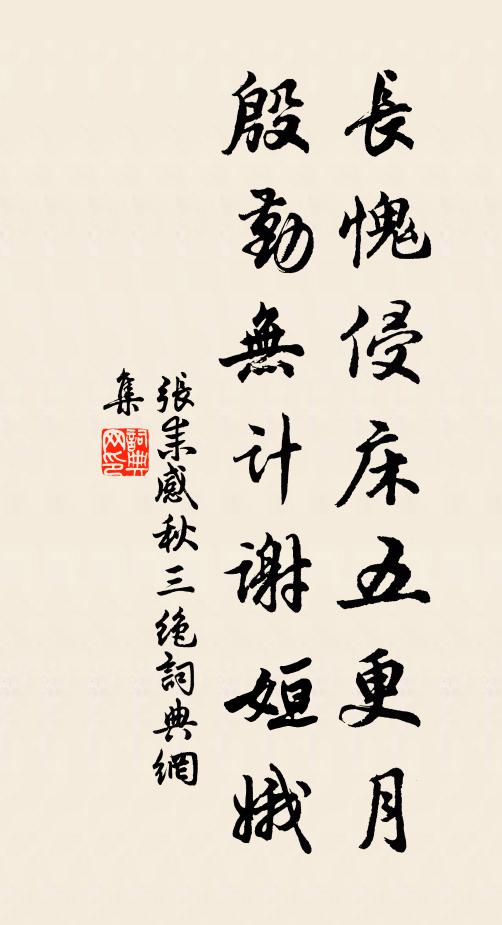 長愧侵床五更月
殷勤無计謝姮娥
張耒感秋三绝詞典網
集
詞典
网印